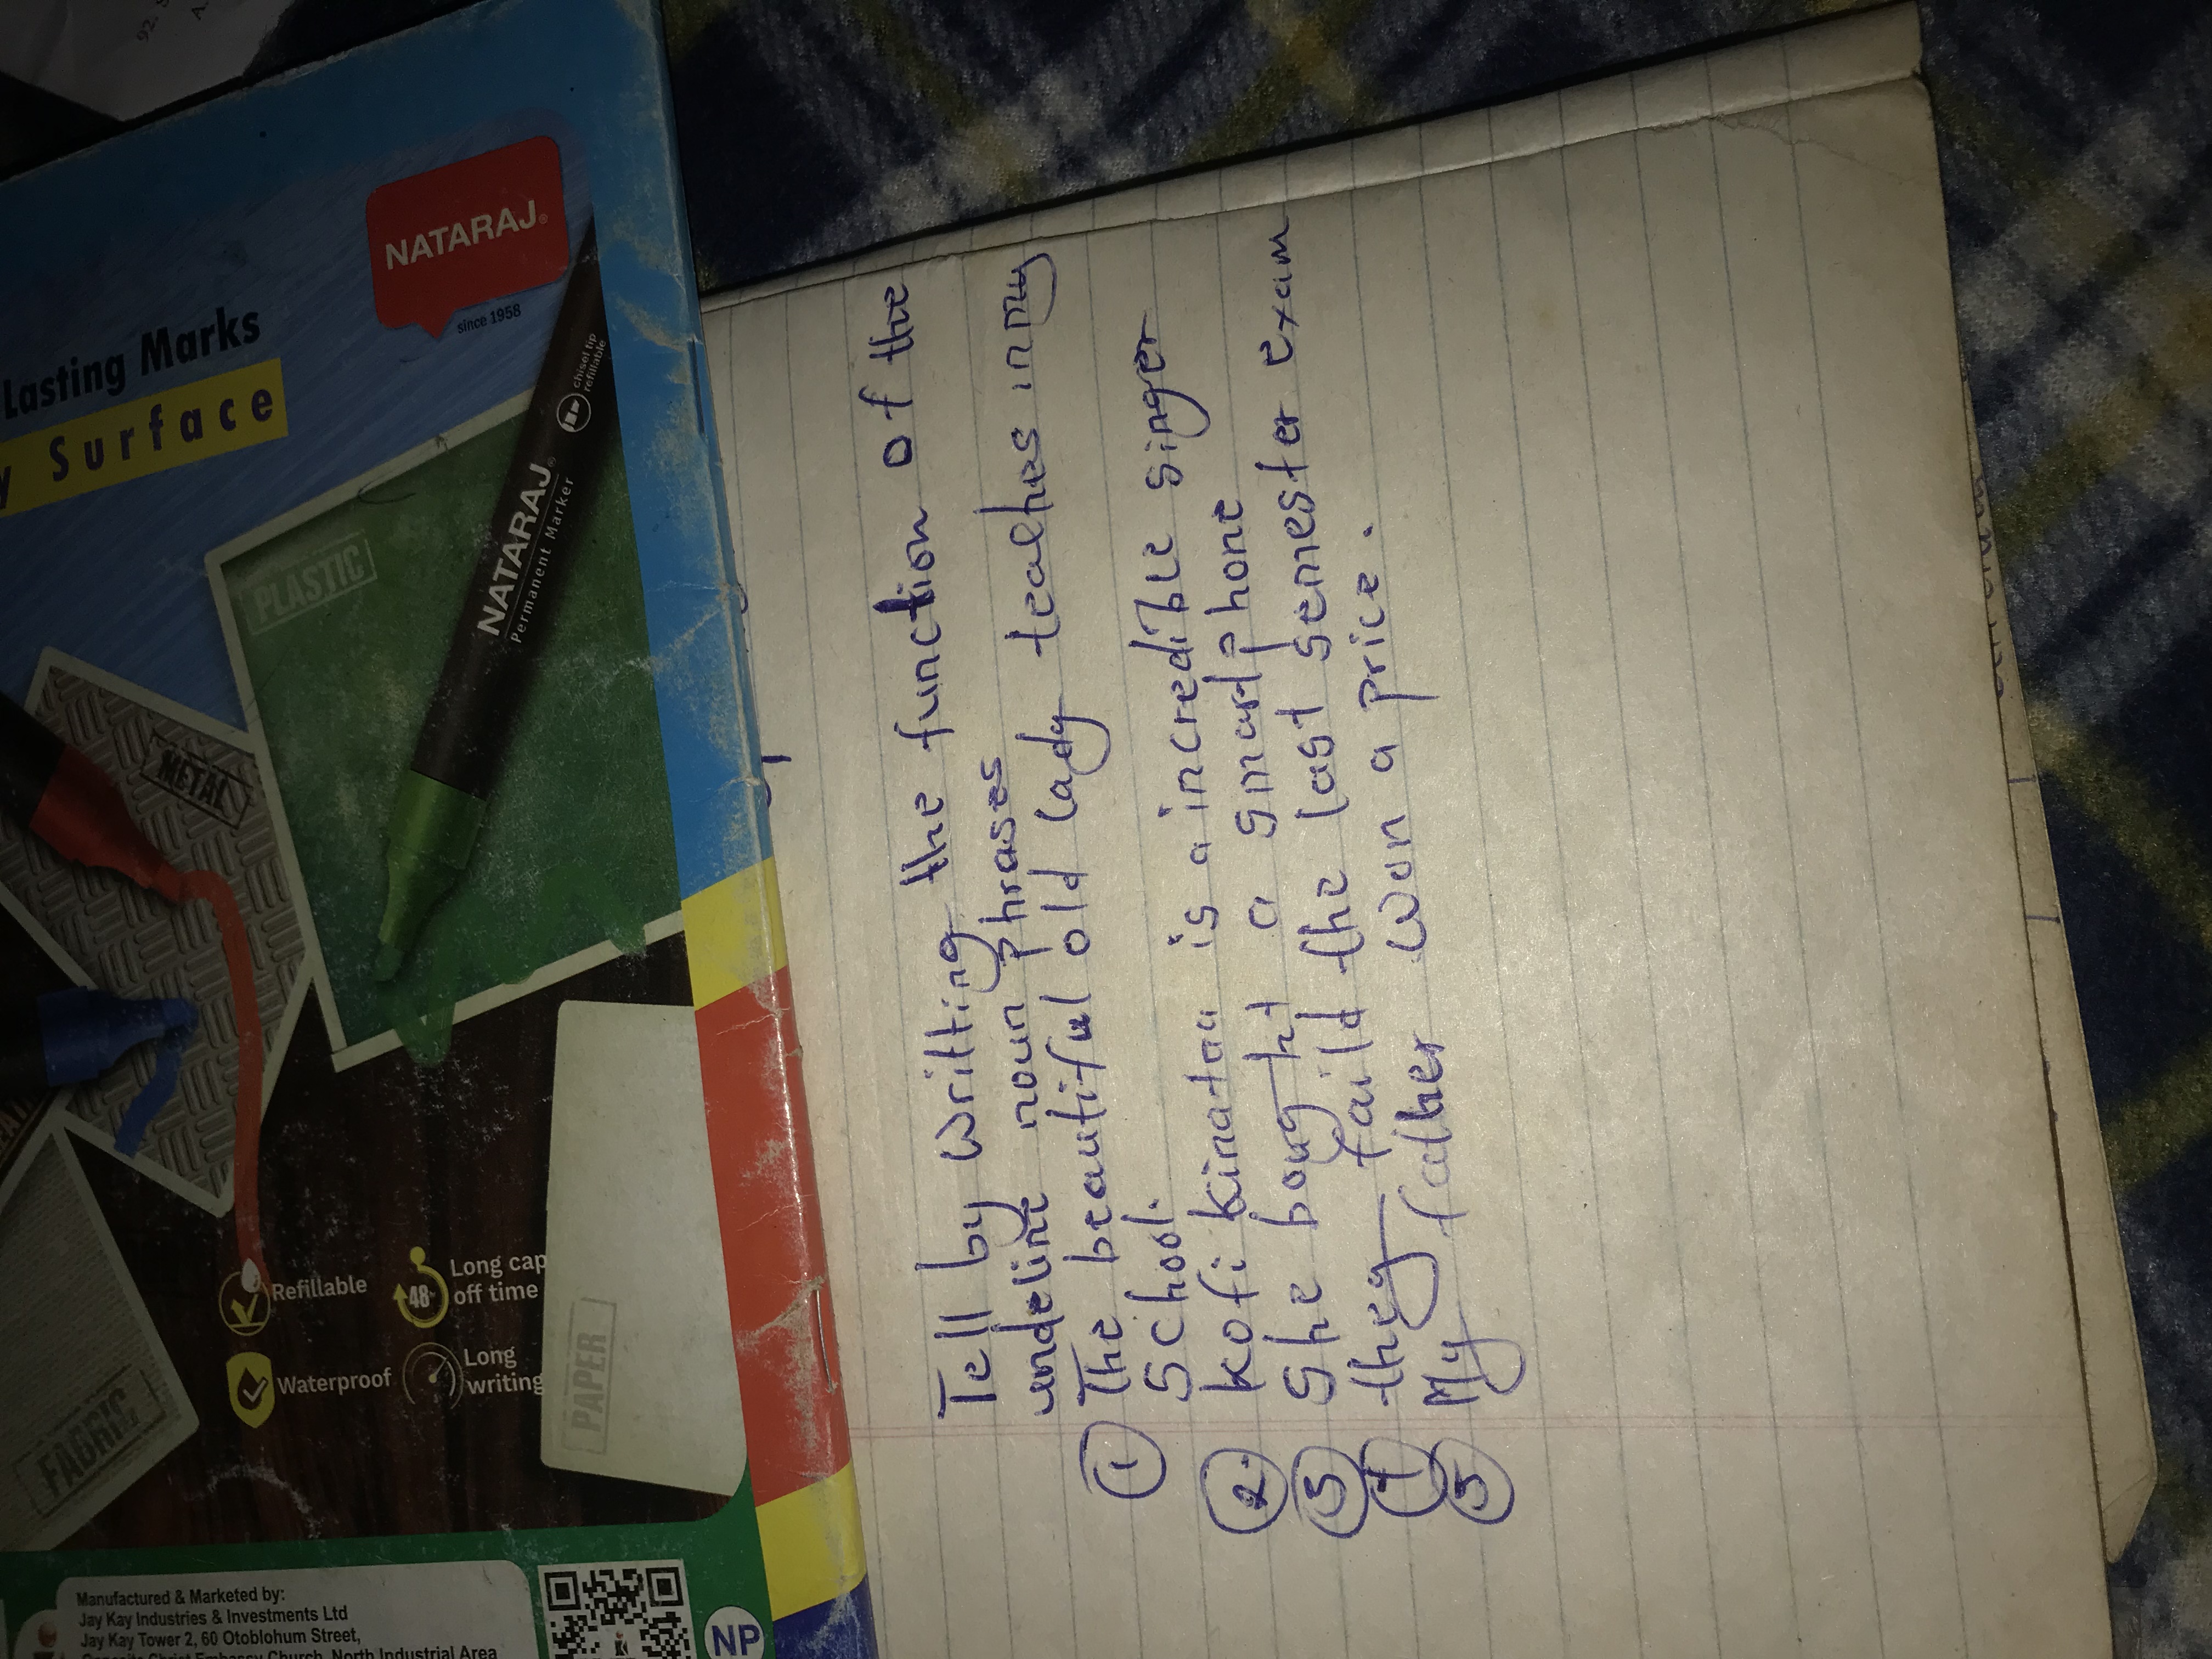 92. S
A.
Lasting Marks
y Surface
NATARAJ®
since 1958
PLASTIC
METAL
NATARAJ®
Permanent Marker
chisel tip
refillable
Refillable
48
Long cap
off time
Waterproof
Long
writing
FABRIC
PAPER
Manufactured & Marketed by:
Jay Kay Industries & Investments Ltd
Jay Kay Tower 2, 60 Otoblohum Street,
Opposite Christ Embassy Church, North Industrial Area
NP
Tell by writting the function of the
undeline noun phrases
① The beautiful old lady teaches in my
School.
② Kofi kinataa is a incredible singer
③ She bought a smart phone
④ they faild the last semester exam
⑤ My father won a price.